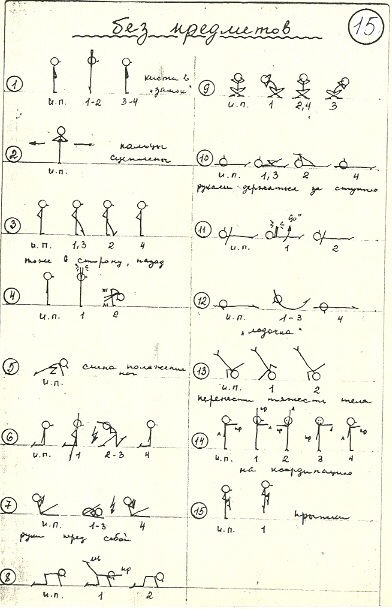 без предметов
15
1
и.п. 1-2 3-4
кисти в
"замок"
2
и.п.
пальцы
сцеплены
3
и.п. 1,3 2 4
тоже в сторону, назад
4
и.п. 1 2
5
и.п.
смена положения
ног
6
и.п. 1 2-3 4
7
и.п. 1-3 4
руки пред собой
8
и.п. 1 2
9
и.п. 1 2,4 3
10
и.п. 1,3 2 4
руками держаться за ступню
11
90°
и.п. 1 2
12
и.п. 1-3 4
"лодочка"
13
и.п. 1 2
перенести тяжесть тела
14
и.п. 1 2 3 4
на координацию
15
и.п. 1
прыжки